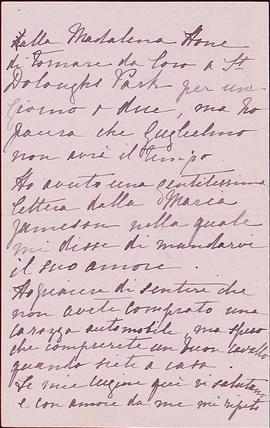 dalla Madalena Hone
di tornare da loro a St
Doloughs Park per un
giorno o due, ma ho
paura che Guglielmo
non avrà il tempo.
Ho avuto una gentilissima
lettera dalla Marca
Jameson nella quale
mi disse di mandarvi
il suo amore.
Ho piacere di sentire che
non avete comprato una
carozza automobile, ma spero
che comprerete un buon cavallo
quando siete a casa.
Le mie cugine qui vi salutano
e con amore da me mi ripeto